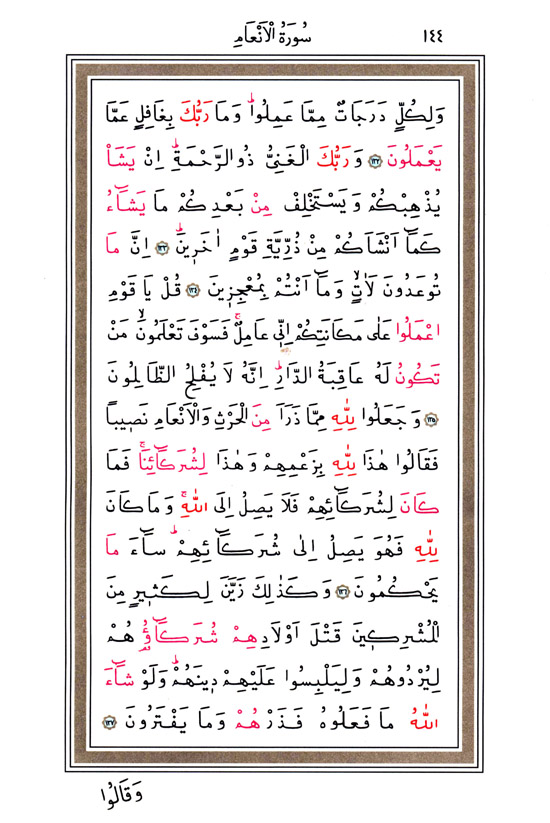 ١٤٤ سُورَةُ الْاَنْعَامِ
وَلِكُلٍّ دَرَجَاتٌ مِمَّا عَمِلُواۜ وَمَا رَبُّكَ بِغَافِلٍ عَمَّا
يَعْمَلُونَ ﴿١٣٢﴾ وَرَبُّكَ الْغَنِىُّ ذُوالرَّحْمَةِۜ اِنْ يَشَأْ
يُذْهِبْكُمْ وَيَسْتَخْلِفْ مِنْ بَعْدِكُمْ مَا يَشَٓاءُ
كَمَٓا اَنْشَاَكُمْ مِنْ ذُرِّيَّةِ قَوْمٍ اٰخَرٖينَۜ ﴿١٣٣﴾ اِنَّ مَا
تُوعَدُونَ لَاٰتٍۙ وَمَٓا اَنْتُمْ بِمُعْجِزٖينَ ﴿١٣٤﴾ قُلْ يَا قَوْمِ
اعْمَلُوا عَلٰى مَكَانَتِكُمْ اِنّٖى عَامِلٌۚ فَسَوْفَ تَعْلَمُونَۙ مَنْ
تَكُونُ لَهُ عَاقِبَةُ الدَّارِۜ اِنَّهُ لَا يُفْلِحُ الظَّالِمُونَ
﴿١٣٥﴾ وَجَعَلُوا لِلّٰهِ مِمَّا ذَرَاَ مِنَ الْحَرْثِ وَالْاَنْعَامِ نَصٖيباً
فَقَالُوا هٰذَا لِلّٰهِ بِزَعْمِهِمْ وَهٰذَا لِشُرَكَٓائِنَاۚ فَمَا
كَانَ لِشُرَكَٓائِهِمْ فَلَا يَصِلُ اِلَى اللّٰهِۚ وَمَا كَانَ
لِلّٰهِ فَهُوَ يَصِلُ اِلٰى شُرَكَٓائِهِمْۜ سَٓاءَ مَا
يَحْكُمُونَ ﴿١٣٦﴾ وَكَذٰلِكَ زَيَّنَ لِكَثٖيرٍ مِنَ
الْمُشْرِكٖينَ قَتْلَ اَوْلَادِهِمْ شُرَكَٓاؤُ۬هُمْ
لِيُرْدُوهُمْ وَلِيَلْبِسُوا عَلَيْهِمْ دٖينَهُمْۜ وَلَوْ شَٓاءَ
اللّٰهُ مَا فَعَلُوهُ فَذَرْهُمْ وَمَا يَفْتَرُونَ ﴿١٣٧﴾
وَقَالُوا